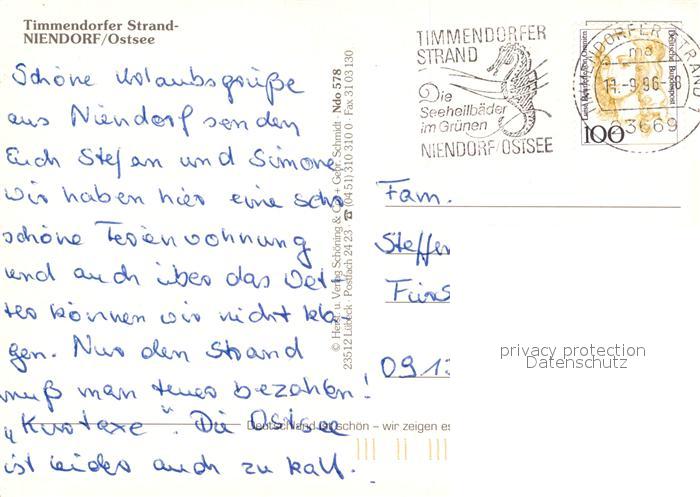 Timmendorfer Strand-
NIENDORF/Ostsee
Schöne Urlaubsgrüße
aus Niendorf senden
Euch Stefan und Simone
wir haben hier eine sehr
schöne Ferienwohnung
und auch über das Wet-
ter können wir nicht kla-
gen. Nur den Strand
muß man teuer bezahlen!
"Kurtaxe". Die Ostsee
ist leider auch zu kalt.
© Herst. u. Verlag Schöning & Co + Gebr. Schmidt · Ndo 578
23512 Lübeck · Postfach 24 23 · ☎ (04 51) 310 310 0 · Fax 31 03 130
Deutschland ist schön – wir zeigen es
TIMMENDORFER
STRAND
Die
Seeheilbäder
im Grünen
NIENDORF/OSTSEE
TIMMENDORFER STRAND 1
ma
11.-9.96-18
23669
Deutsche Bundespost
100
Fam.
Steffen
Fürs
09 1
privacy protection
Datenschutz